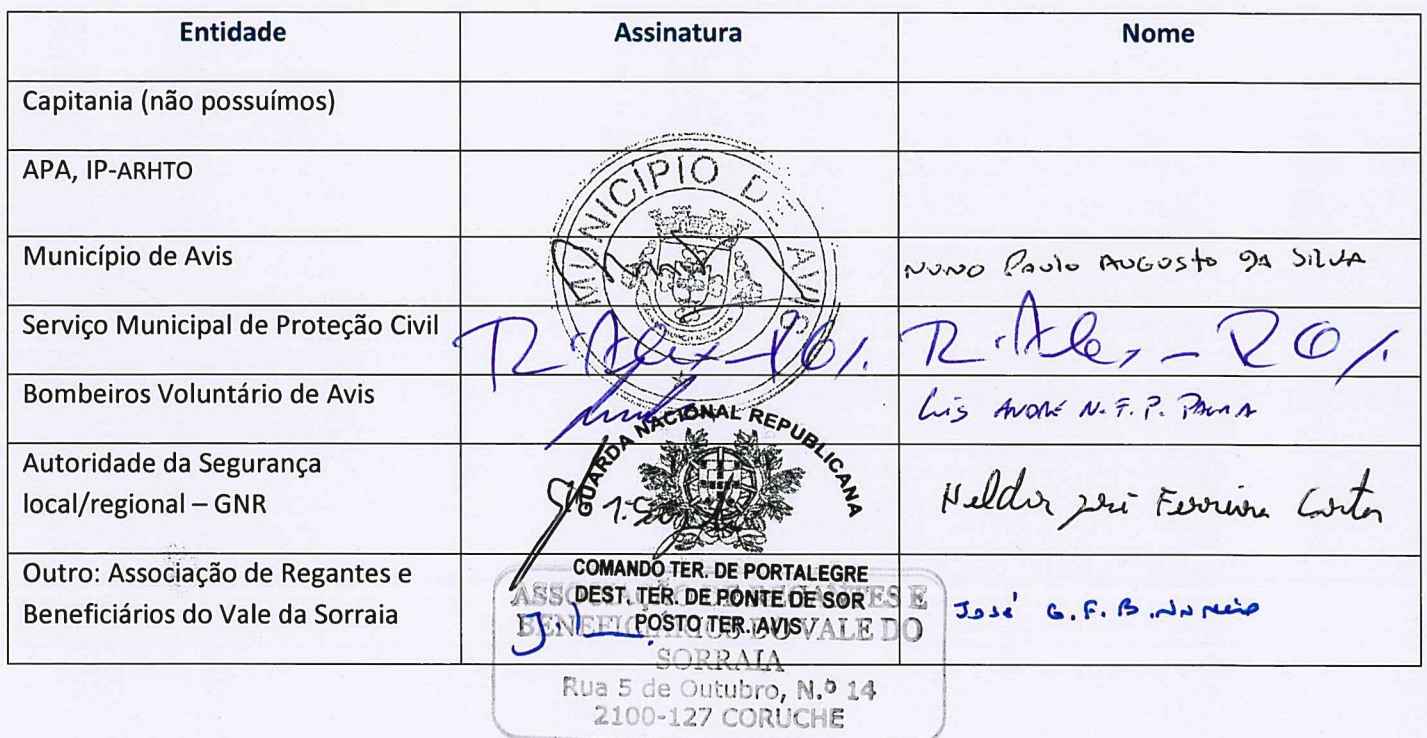 Entidade Assinatura Nome
Capitania (não possuímos)
APA, IP-ARHTO
MUNICÍPIO DE AVIS
Município de Avis
NUNO PAULO AUGUSTO DA SILVA
Serviço Municipal de Proteção Civil
Bombeiros Voluntário de Avis
Luís André N. F. P.
GUARDA NACIONAL REPUBLICANA
Autoridade da Segurança
local/regional – GNR
Helder José Ferreira
COMANDO TER. DE PORTALEGRE
DEST. TER. DE PONTE DE SOR
POSTO TER. AVIS
Outro: Associação de Regantes e
Beneficiários do Vale da Sorraia
José G. F. B.
ASSOCIAÇÃO DE REGANTES E
BENEFICIÁRIOS DO VALE DO
SORRAIA
Rua 5 de Outubro, N.º 14
2100-127 CORUCHE